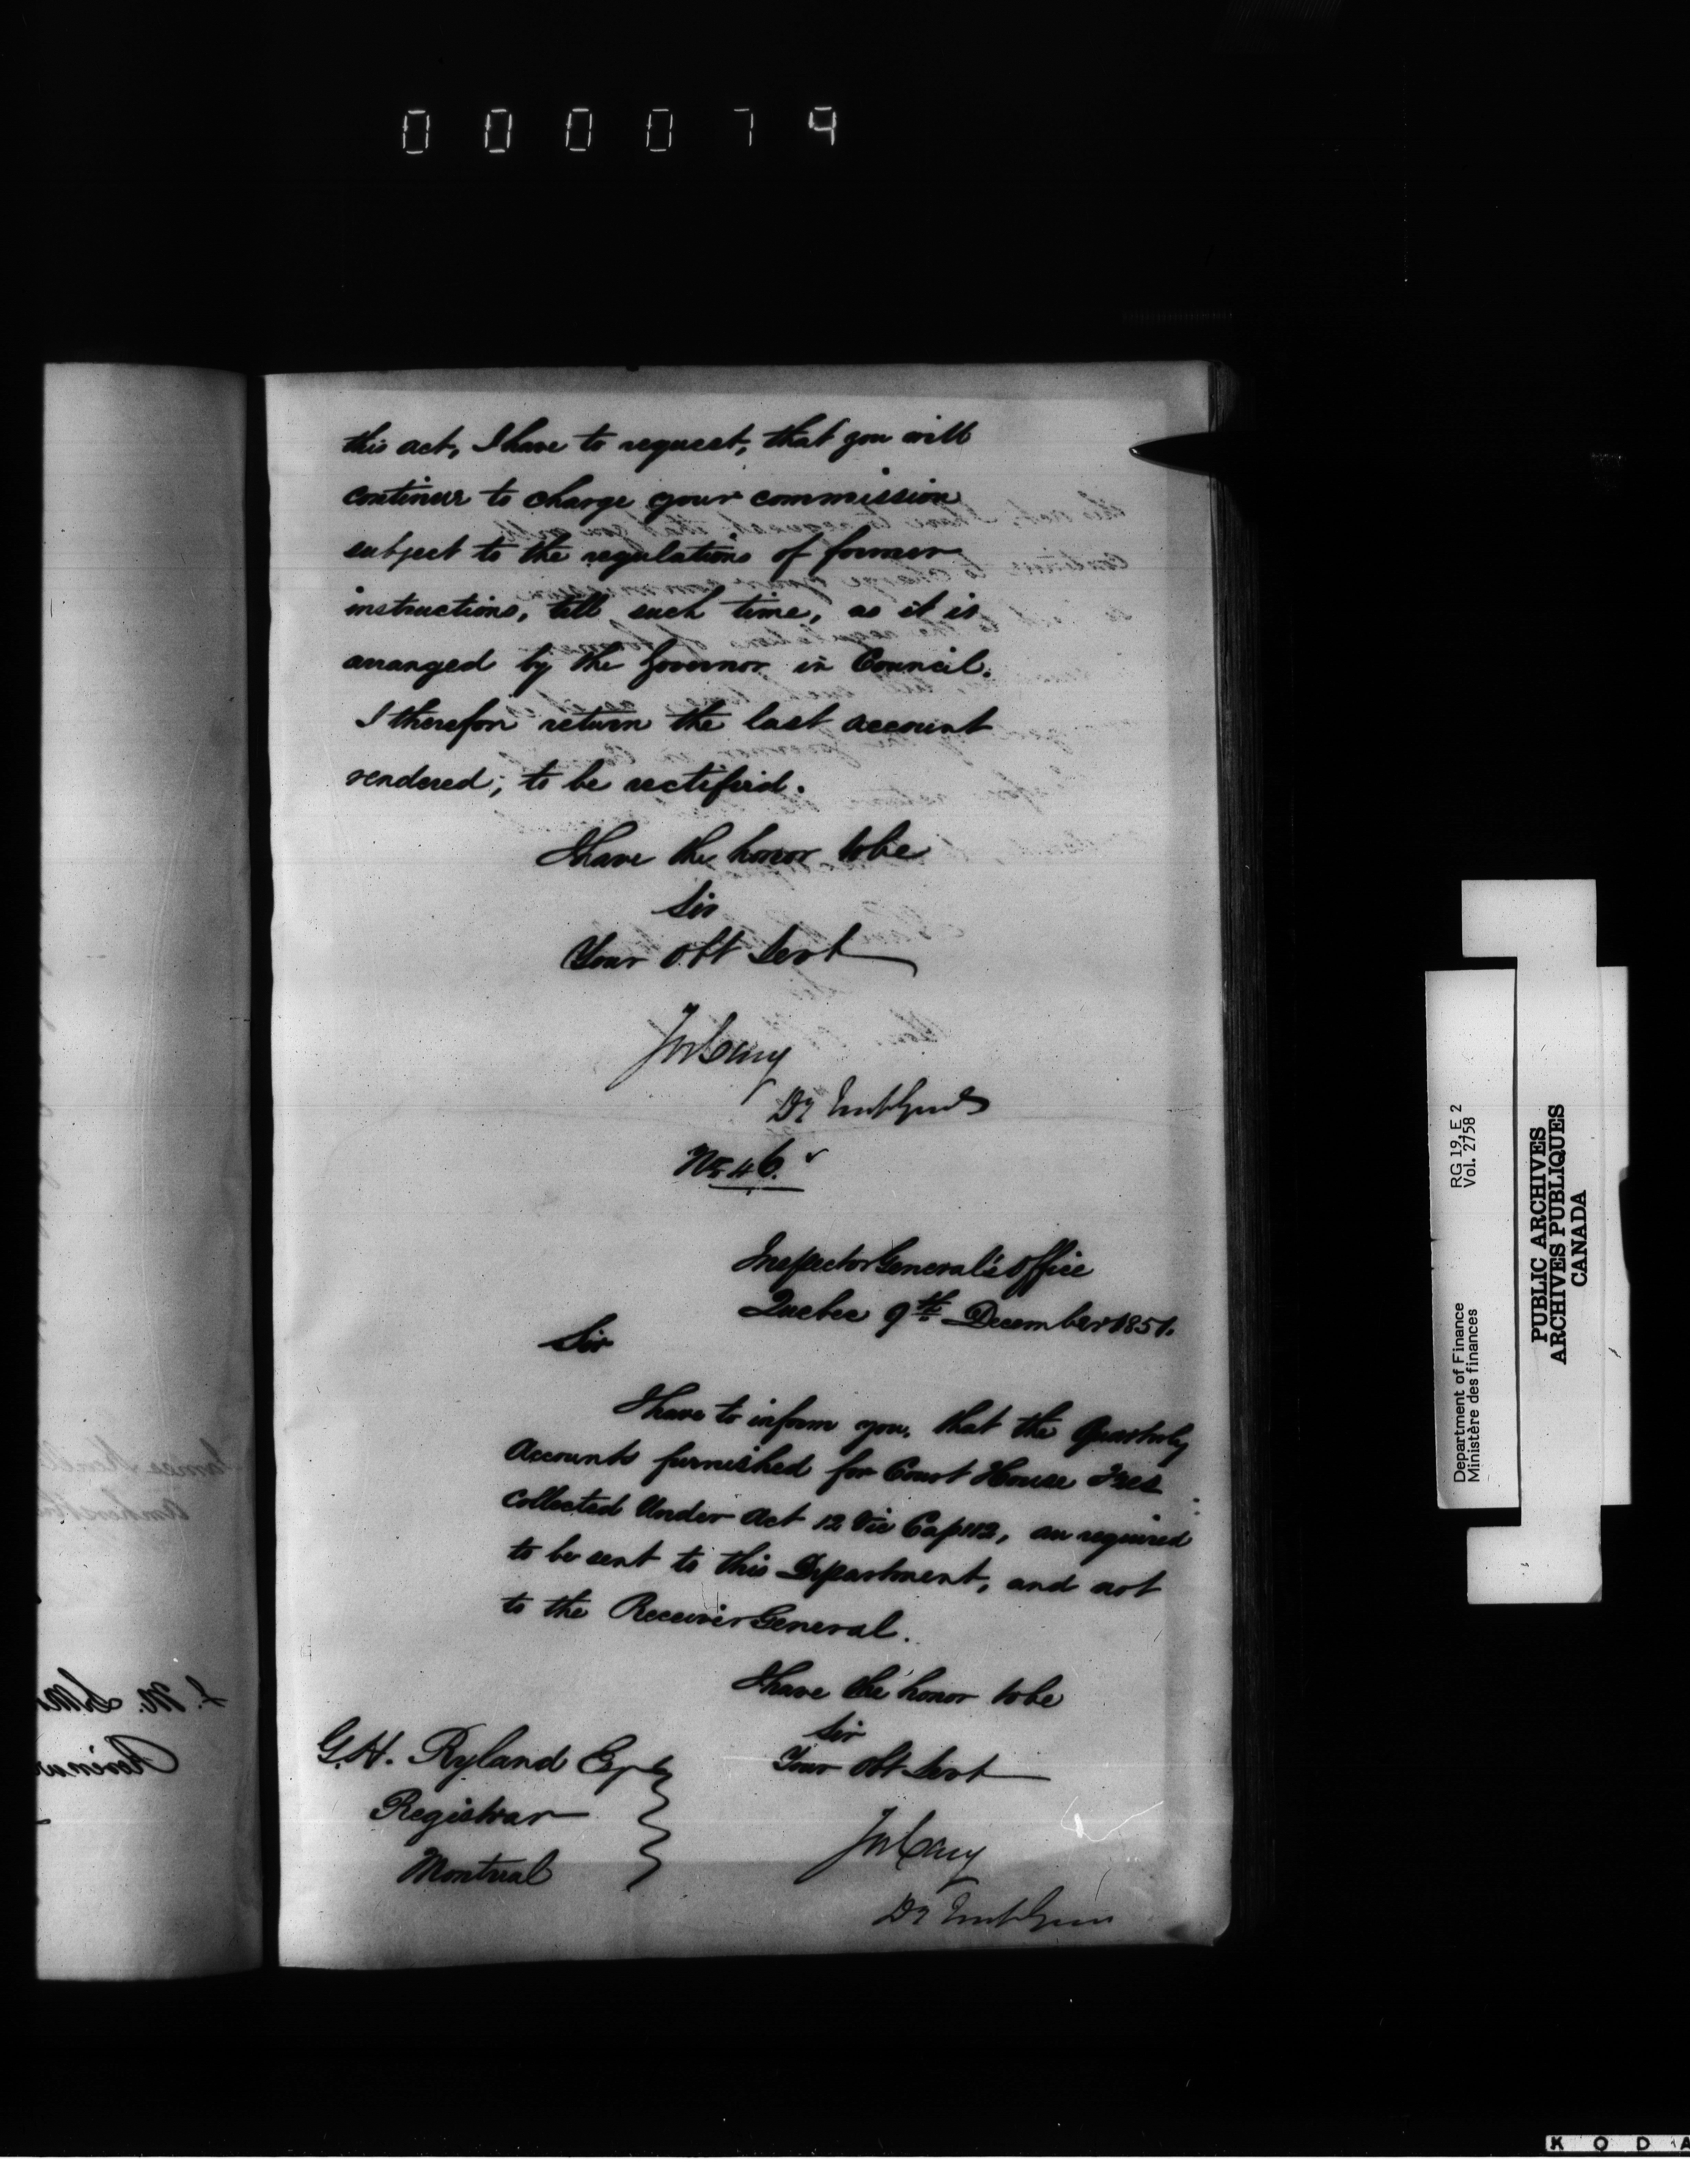 000079
this act, I have to request, that you will
continue to charge your commission
subject to the regulations of former
instructions, till such time, as it is
arranged by the Governor in Council.
I therefore return the last account
rendered; to be rectified.
I have the honor to be
Sir
Your Obt Servt
Jos Cary
Dy Insp Genl
No 46.
Inspector General's Office
Quebec 9th December 1851.
Sir
I have to inform you, that the Quarterly
Accounts furnished for Court House Fees
collected Under Act 12 Vic Cap 112, are required
to be sent to this Department, and not
to the Receiver General.
I have the honor to be
Sir
Your Obt Servt
G.H. Ryland Esqr
Registrar
Montreal
Jos Cary
Dy Insp Genl
Department of Finance
Ministère des finances
RG 19, E 2
Vol. 2758
PUBLIC ARCHIVES
ARCHIVES PUBLIQUES
CANADA
KODA